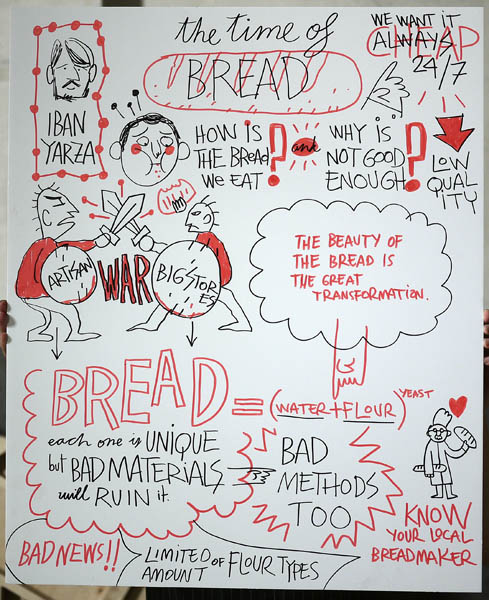 the time of
BREAD
WE WANT IT
ALWAYS
CHEAP
24/7
IBAN
YARZA
HOW IS
THE BREAD
WE EAT?
and
WHY IS
NOT GOOD
ENOUGH?
LOW
QUAL
ITY
ARTISAN
WAR
BIG STOR
ES
THE BEAUTY OF
THE BREAD IS
THE GREAT
TRANSFORMATION.
BREAD = (WATER + FLOUR) YEAST
each one is UNIQUE
but BAD MATERIALS
will RUIN it.
BAD
METHODS
TOO
KNOW
YOUR LOCAL
BREADMAKER
BAD NEWS!!
LIMITED OF FLOUR TYPES
AMOUNT